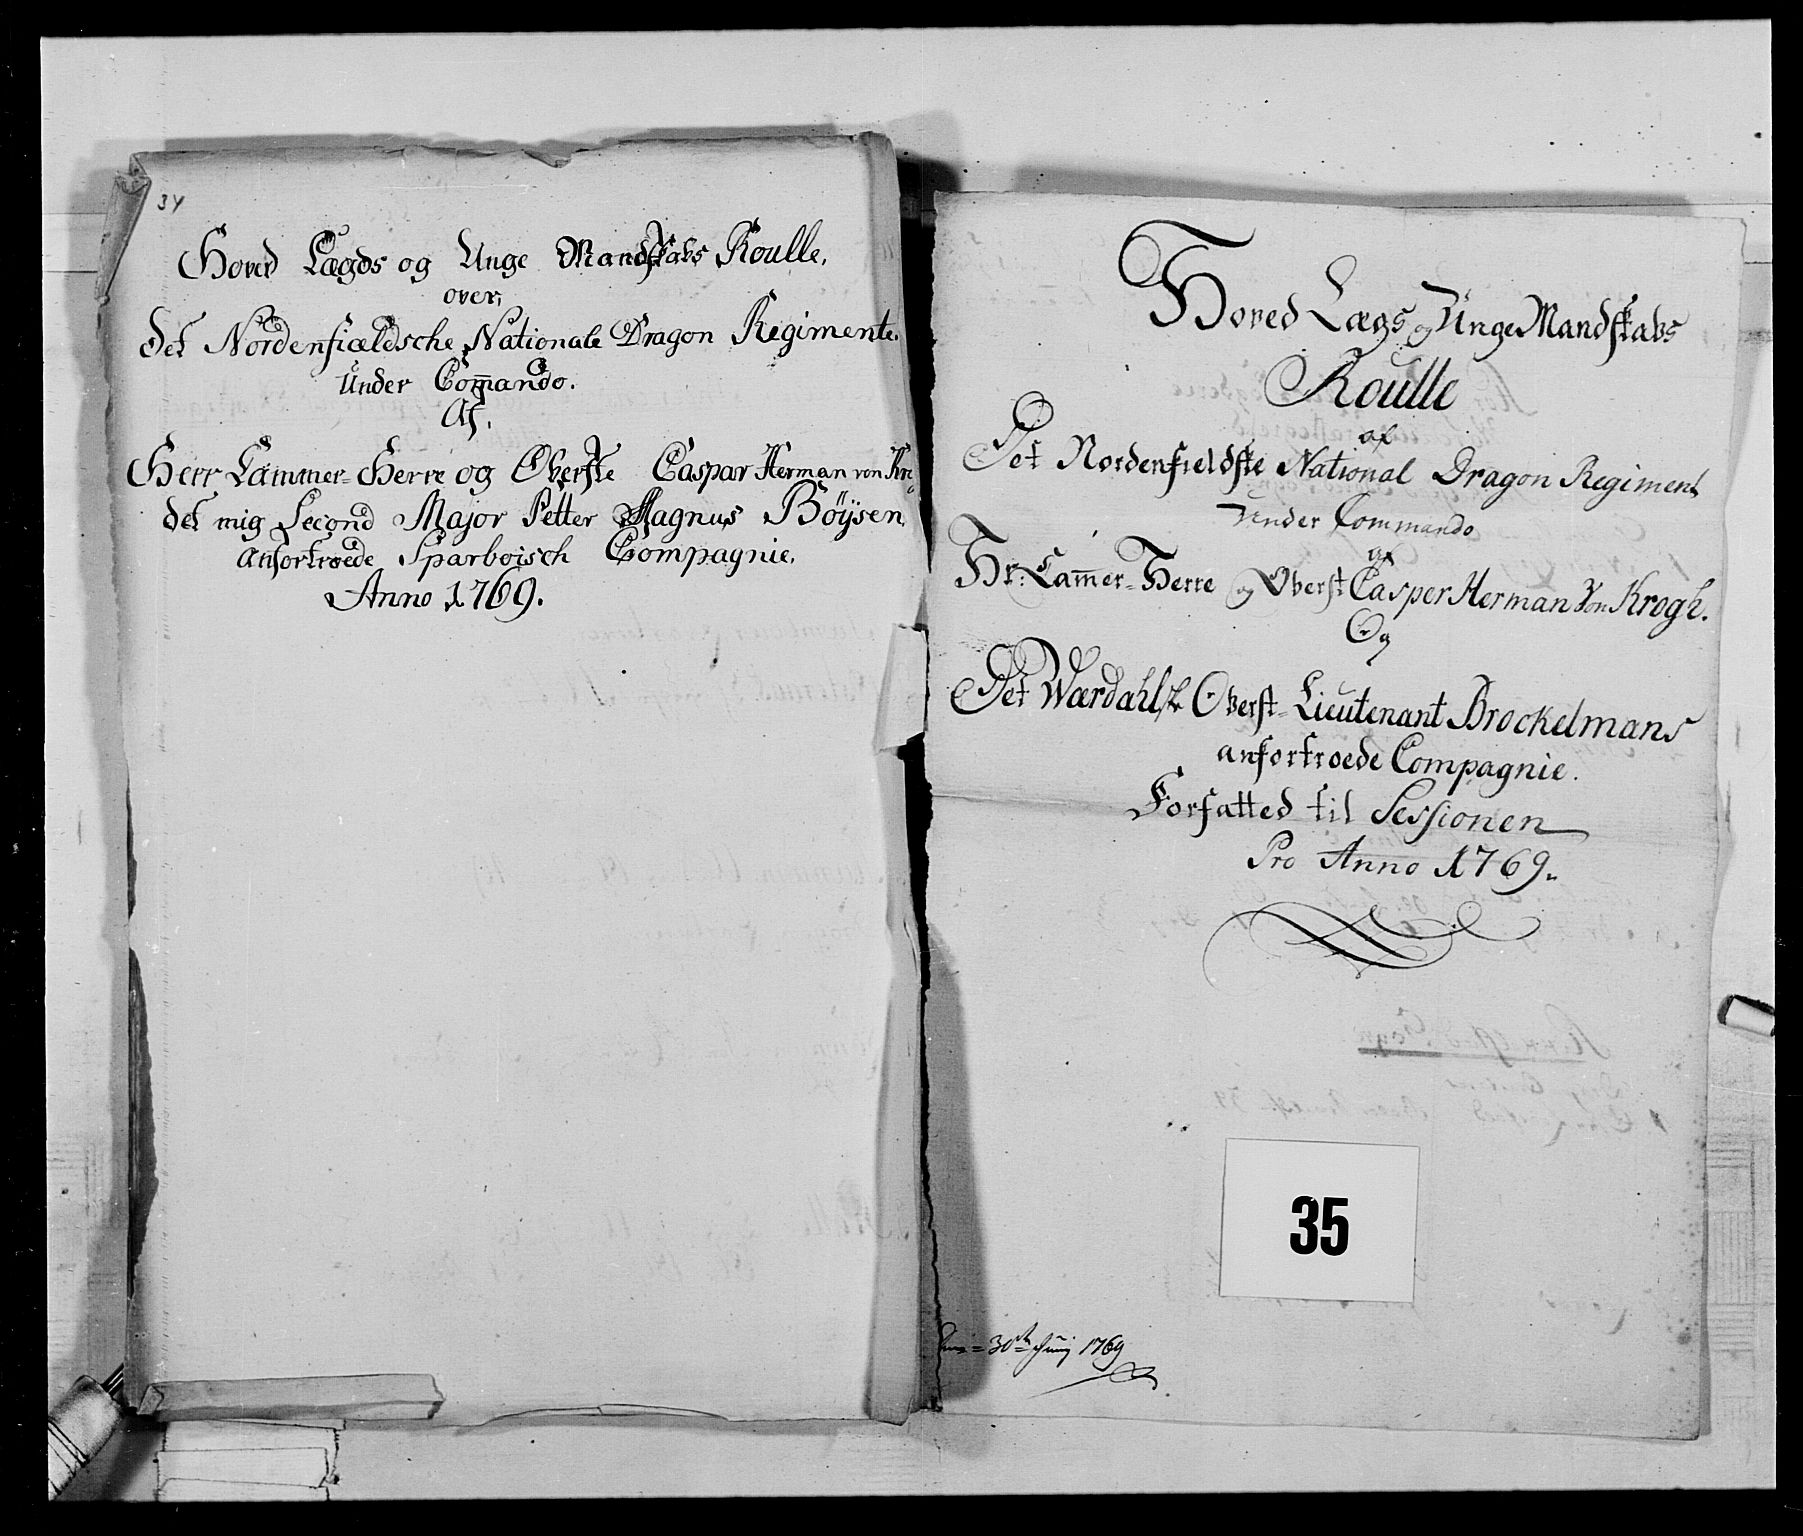 34
Hoved Lægds og Unge Mandskabs Roulle,
over,
det Nordenfiældsche Nationale Dragon Regimente.
Under Com̄ando.
Af.
Herr Cammer-Herre og Oberste Caspar Herman von Kro
det mig Second Major Petter Magnus Böÿsen,
anfortroede Sparboisch Compagnie.
Anno 1769.
Hoved Lægs og Unge Mandskabs
Roulle
af
Det Nordenfieldske National Dragon Regiment
Under Commando
af
Hr: Cam̄er-Herre og Oberst Casper Herman Von Krogh.
Og
Det Wærdahlske Oberst-Lieutenant Brockelmans
anfortroede Compagnie.
Forfatted til Sessionen
Pro Anno 1769.
35
30te Junij 1769